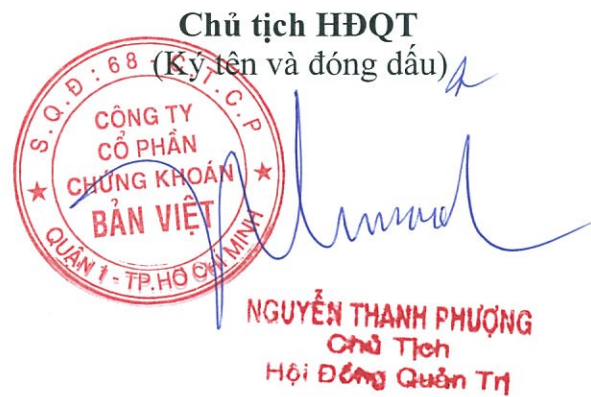 Chủ tịch HĐQT
(Ký tên và đóng dấu)
S.Q.Đ: 68 - C.T.C.P
CÔNG TY
CỔ PHẦN
CHỨNG KHOÁN
BẢN VIỆT
QUẬN 1 - TP.HỒ CHÍ MINH
NGUYỄN THANH PHƯỢNG
Chủ Tịch
Hội Đồng Quản Trị